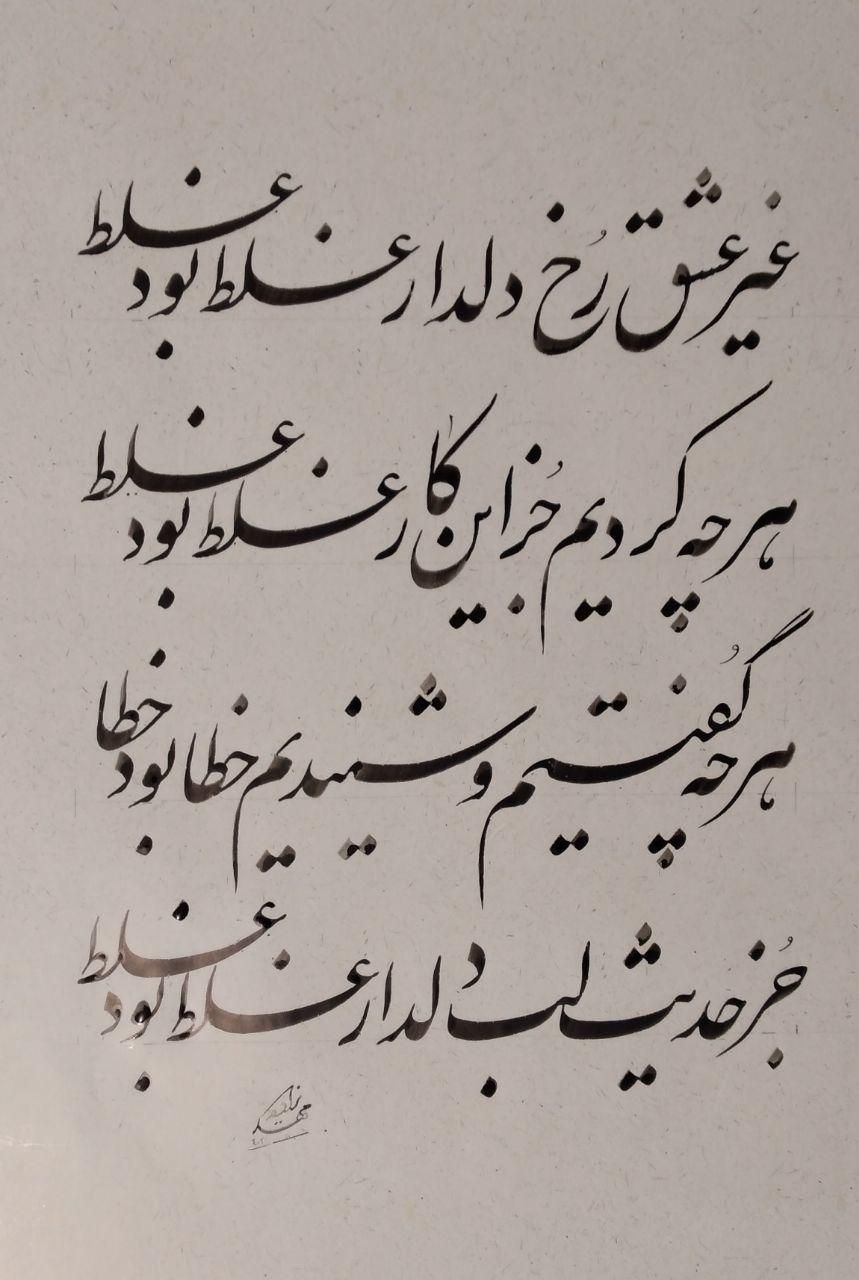 غیر عشق رُخ دلدار غلط بود غلط
هرچه کردیم جُز این کار غلط بود غلط
هرچه گُفتیم و شنیدیم خطا بود خطا
جُز حدیث لب دلدار غلط بود غلط